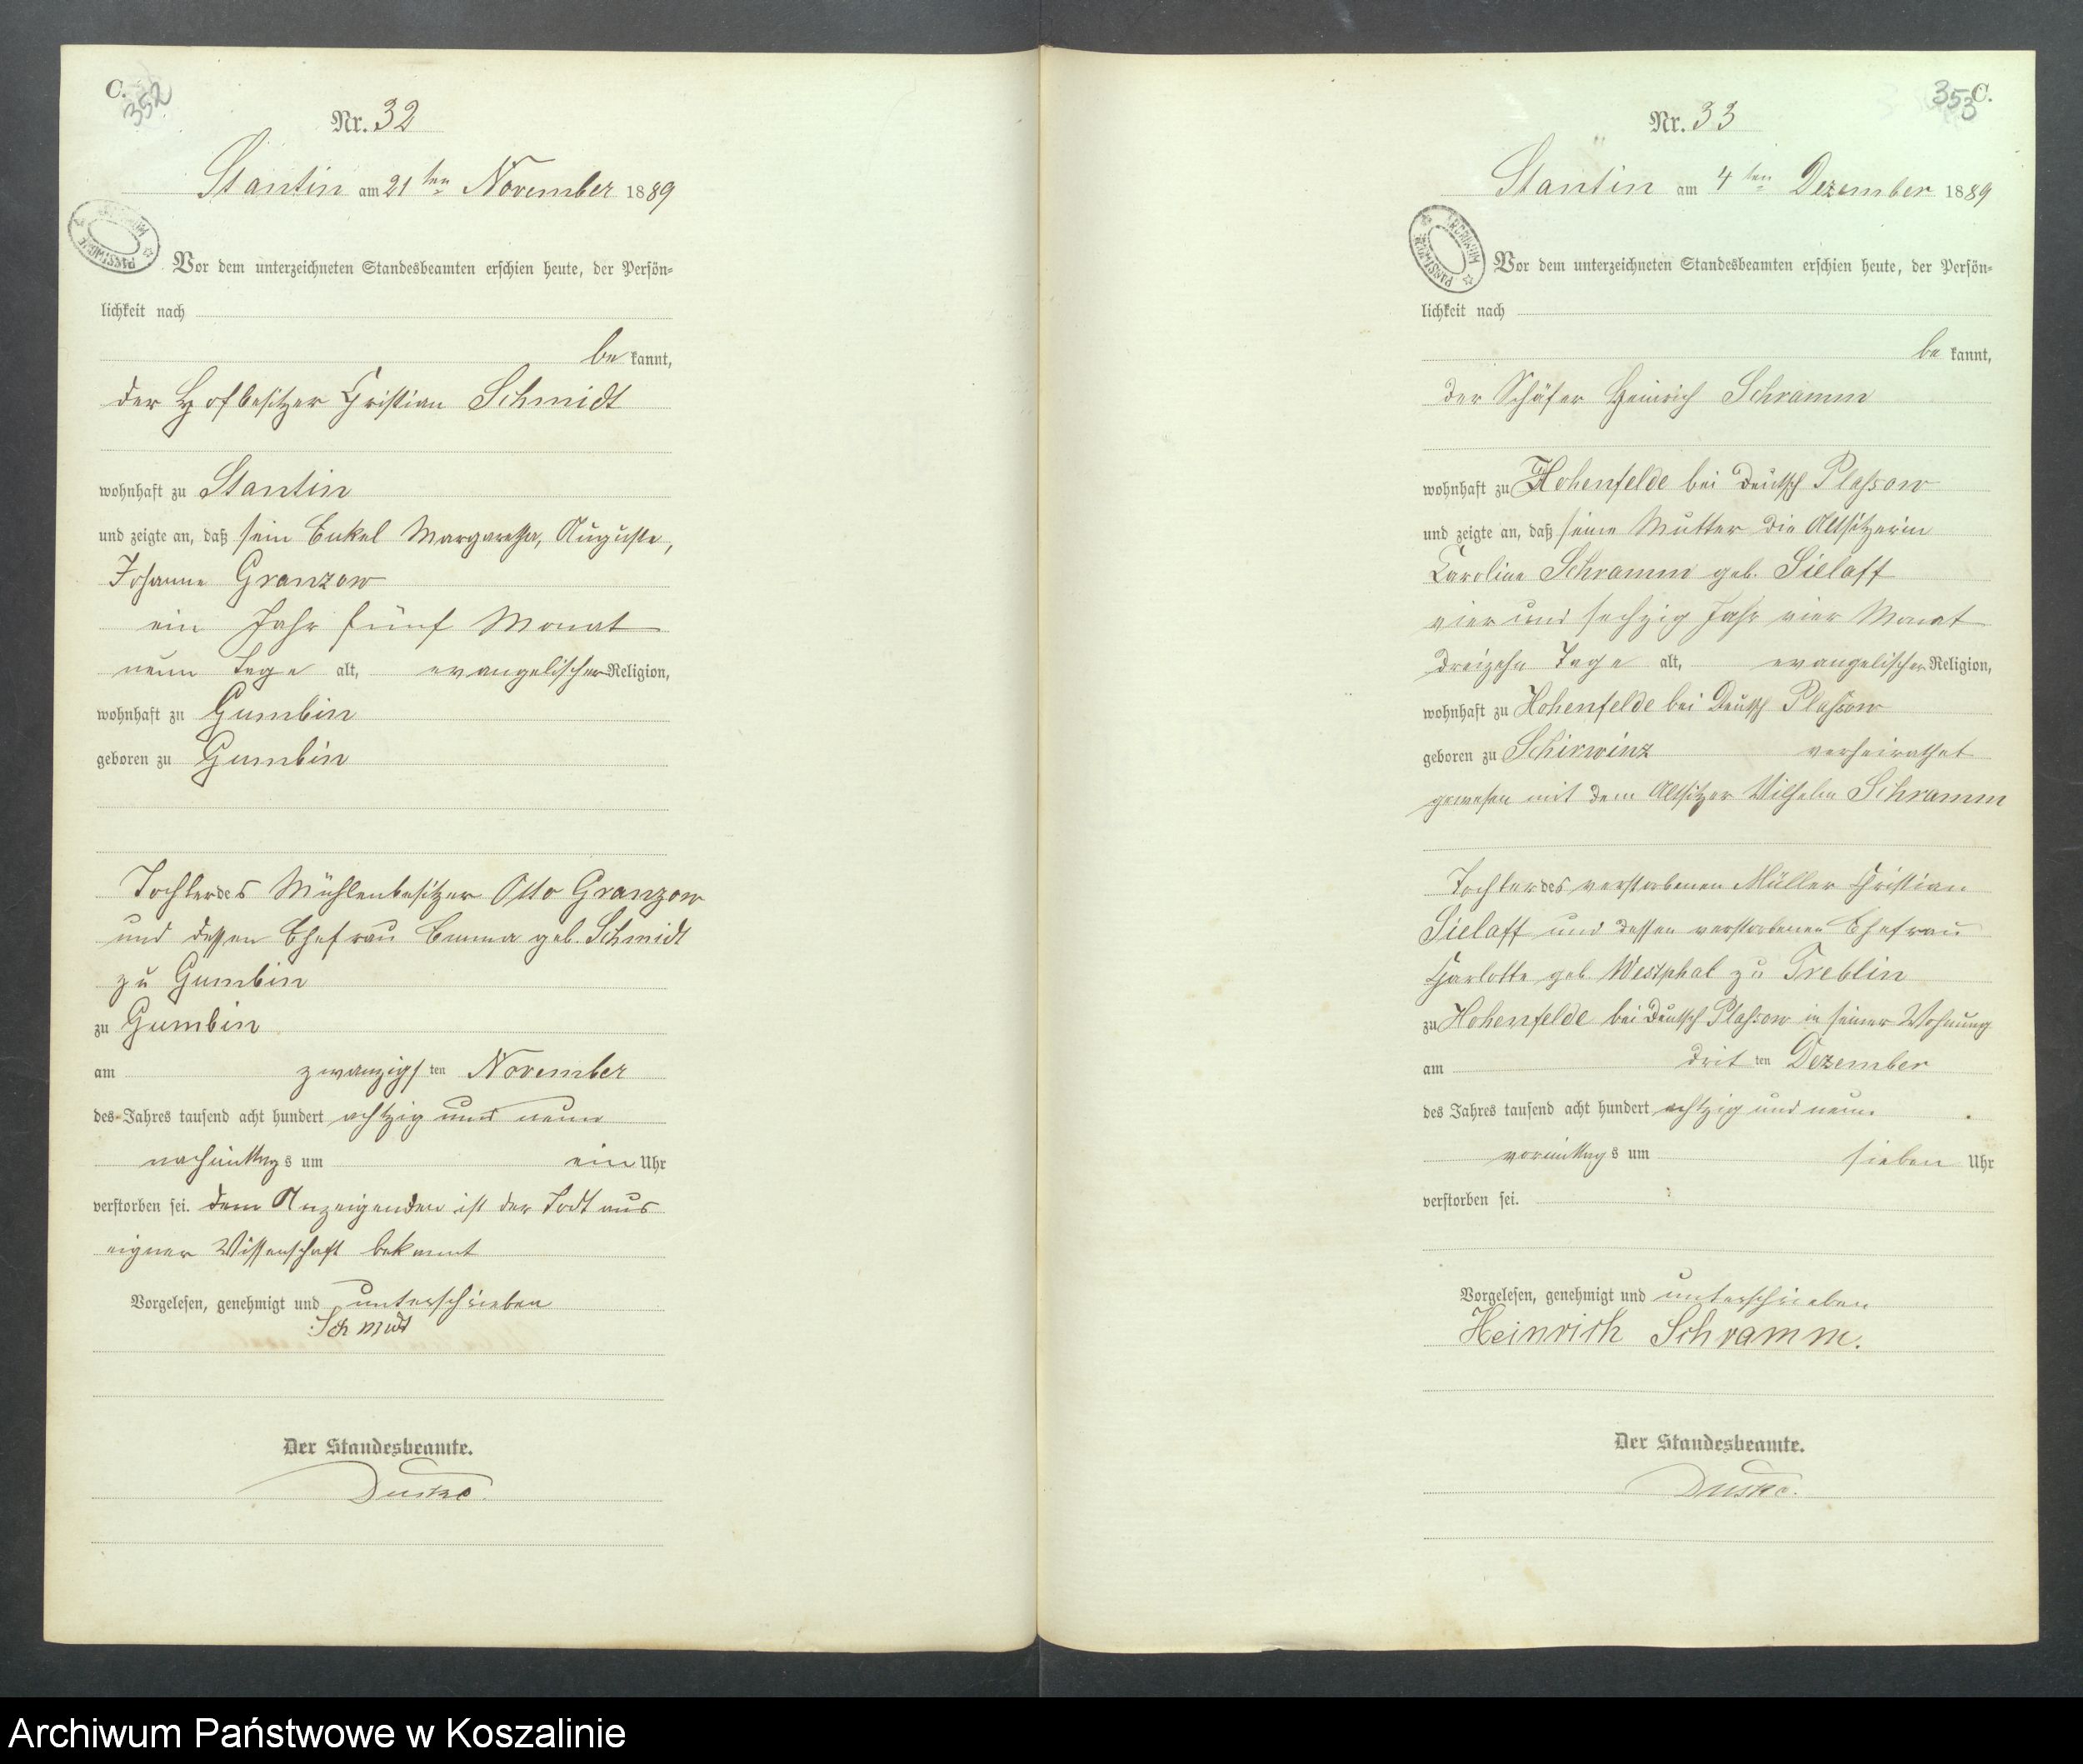 C.
352
Nr. 32
Stantin am 21ten November 1889
Vor dem unterzeichneten Standesbeamten erschien heute, der Persön-
lichkeit nach
be kannt,
der Hofbesitzer Christian Schmidt
wohnhaft zu Stantin
und zeigte an, daß sein Enkel Margaretha, Auguste,
Johanne Granzow
ein Jahr fünf Monat
neun Tage alt, evangelischer Religion,
wohnhaft zu Gumbin
geboren zu Gumbin
Tochter des Mühlenbesitzer Otto Granzow
und dessen Ehefrau Emma geb. Schmidt
zu Gumbin
zu Gumbin
am zwanzigsten November
des Jahres tausend acht hundert achtzig und neun
nachmittags um ein Uhr
verstorben sei. dem Anzeigenden ist der Todt aus
eigner Wissenschaft bekannt
Vorgelesen, genehmigt und unterschrieben
Schmidt
Der Standesbeamte.
353
C.
Nr. 33
Stantin am 4ten Dezember 1889
Vor dem unterzeichneten Standesbeamten erschien heute, der Persön-
lichkeit nach
be kannt,
der Schäfer Heinrich Schramm
wohnhaft zu Hohenfelde bei Deutsch Plassow
und zeigte an, daß seine Mutter die Altsitzerin
Caroline Schramm geb. Sielaff
vier und sechzig Jahr vier Monat
dreizehn Tage alt, evangelischer Religion,
wohnhaft zu Hohenfelde bei Deutsch Plassow
geboren zu Schirwinz verheirathet
gewesen mit dem Altsitzer Wilhelm Schramm
Tochter des verstorbenen Müller Christian
Sielaff und dessen verstorbenen Ehefrau
Charlotte geb Westphal zu Treblin
zu Hohenfelde bei Deutsch Plassow in seiner Wohnung
am dritten Dezember
des Jahres tausend acht hundert achtzig und neun
vormittags um sieben Uhr
verstorben sei.
Vorgelesen, genehmigt und unterschrieben
Heinrich Schramm.
Der Standesbeamte.
Archiwum Państwowe w Koszalinie